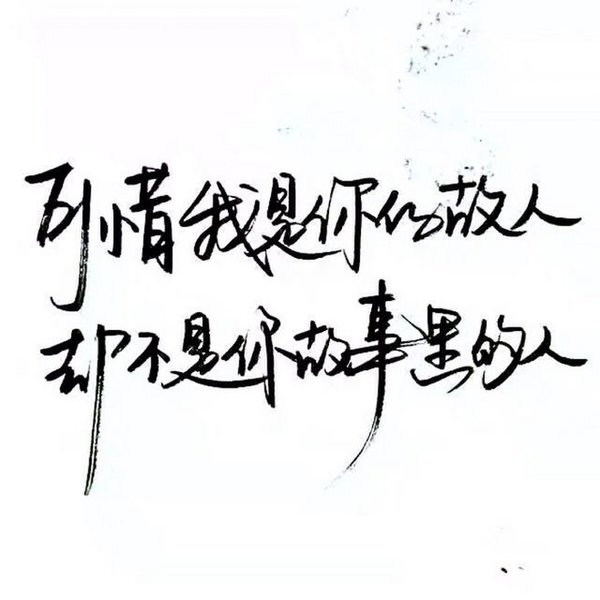 可惜我是你的故人
却不是你故事里的人